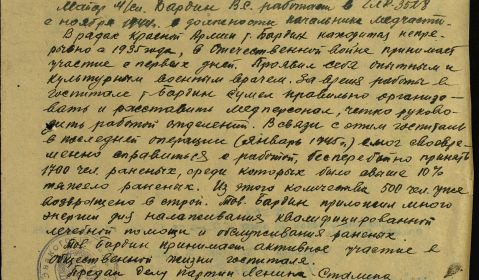 Майор м/сл. Бардин В.С. работает в ЭЛР-3518
с ноября 1944г. в должности начальника медчасти.
В рядах Красной Армии т. Бардин находится непре-
рывно с 1935 года, в Отечественной войне принимает
участие с первых дней. Проявил себя опытным и
культурным военным врачем. За время работы в
госпитале т. Бардин сумел правильно организо-
вать и расставить медперсонал, четко руково-
дить работой отделений. В связи с этим госпиталь
в последней операции (январь 1945г.) смог своевре-
менно справиться с работой, бесперебойно принять
1700 чел. раненых, среди которых было свыше 10%
тяжело раненых. Из этого количества 500 чел. уже
возвращено в строй. Тов. Бардин приложил много
энергии для налаживания квалифицированной
лечебной помощи и обслуживания раненых.
Тов. Бардин принимает активное участие в
общественной жизни госпиталя.
Предан делу партии Ленина Сталина